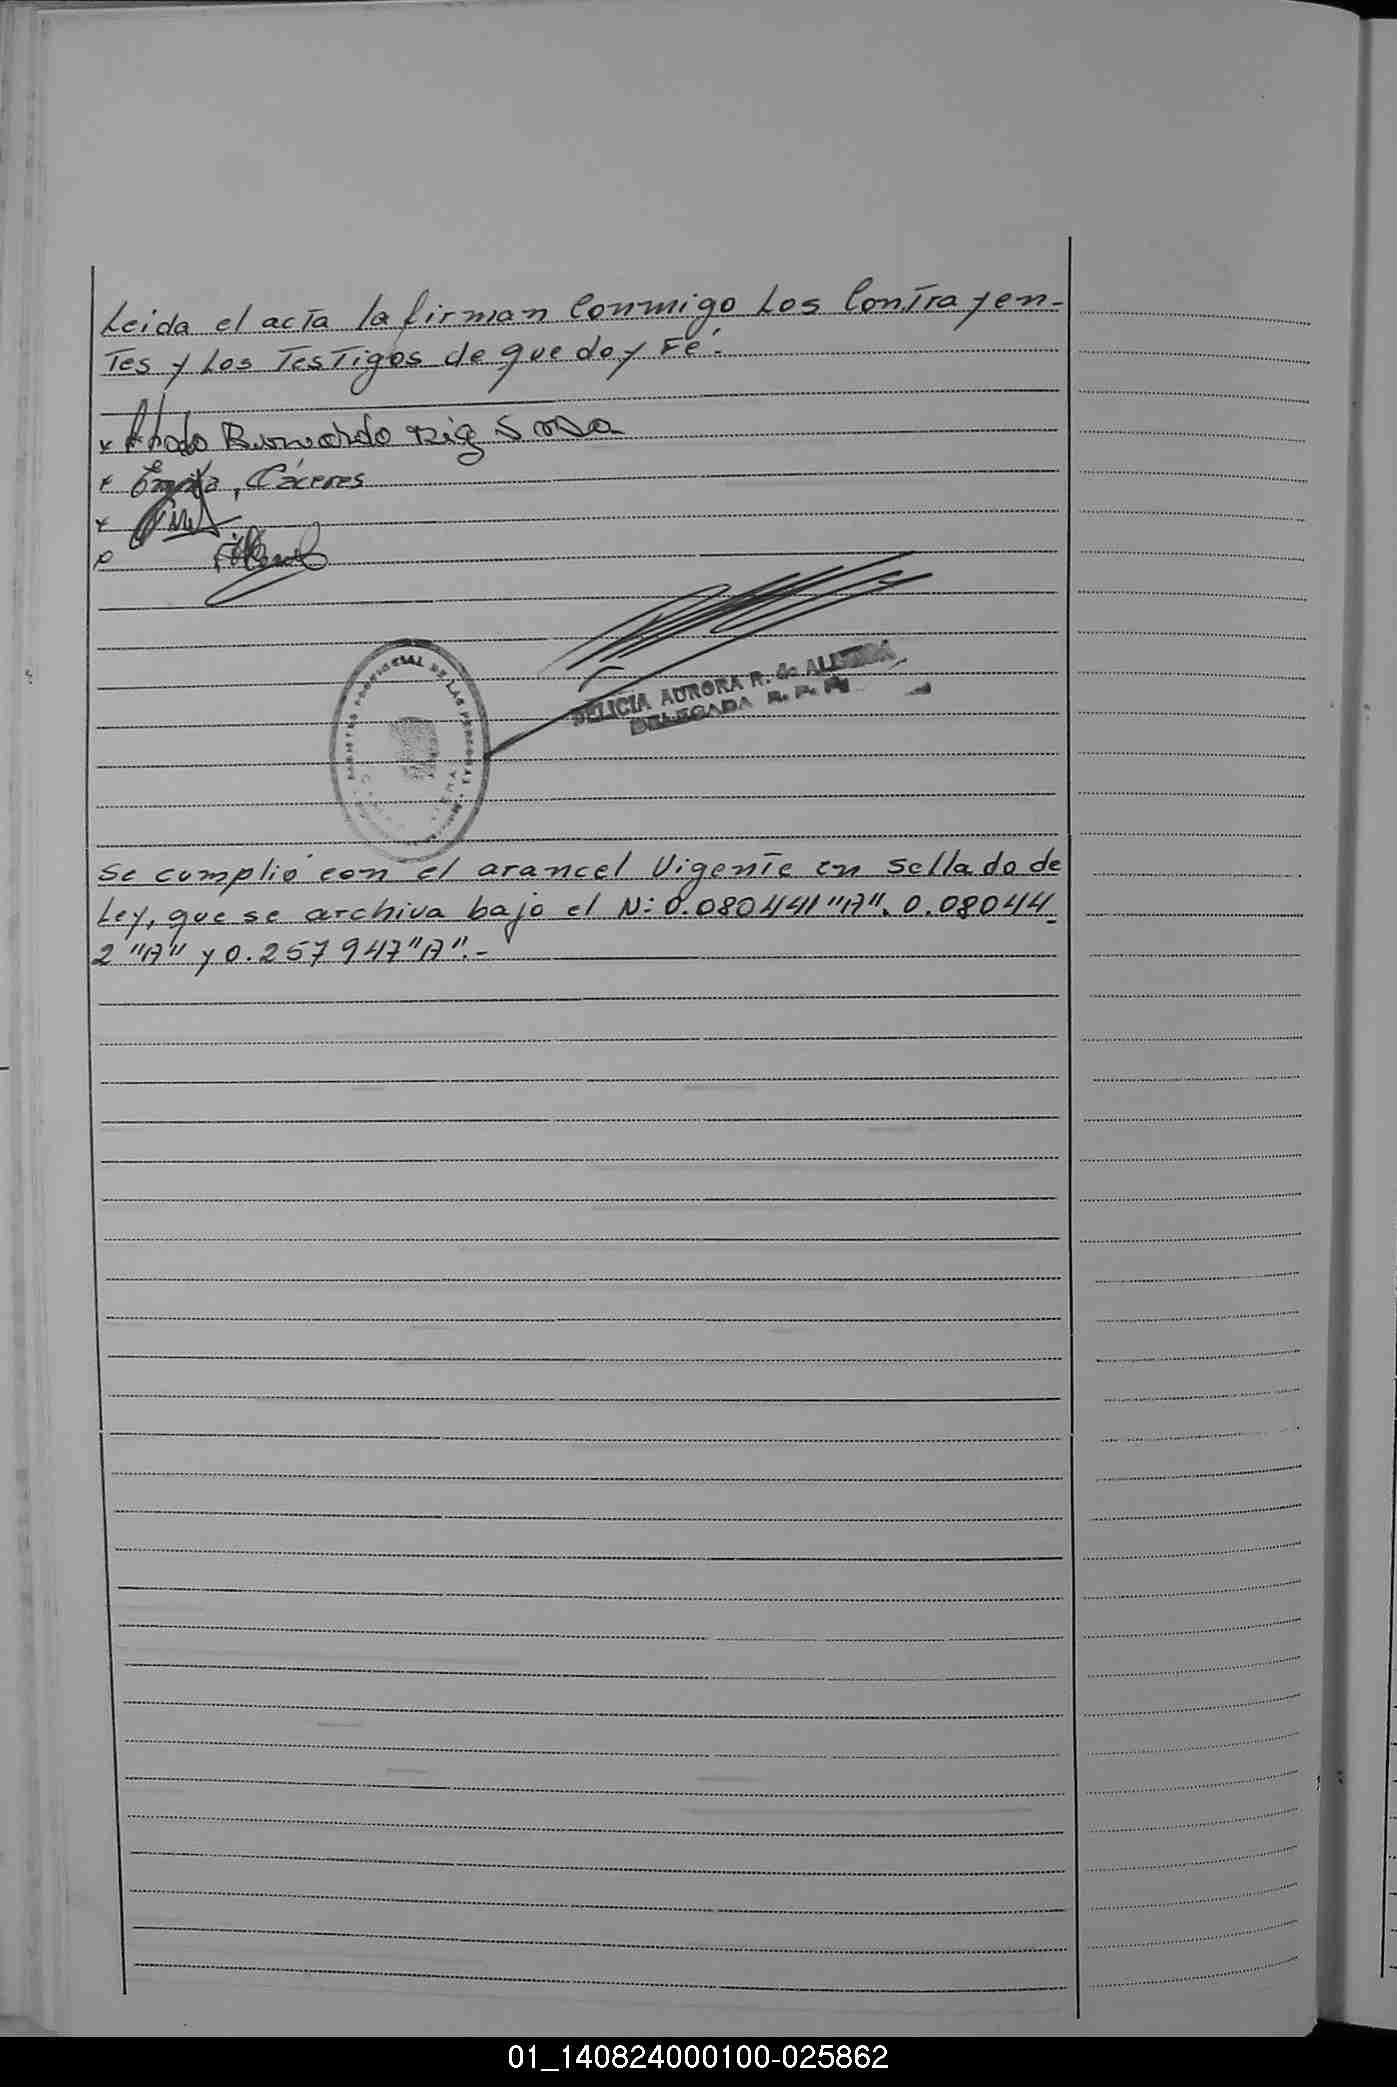 Leida el acta la firman Conmigo Los Contrayen-
Tes y Los TesTigos de que doy Fé.-
Bernardo
, Cáceres
REGISTRO PROVINCIAL DE LAS PERSONAS
DELICIA AURORA R. de
DELEGADA R. P. P.
Se cumplió con el arancel Vigente en sellado de
Ley, que se archiva bajo el N: 0.080441 "A". 0.08044
2 "A" y 0.257947 "A".-
01_140824000100-025862